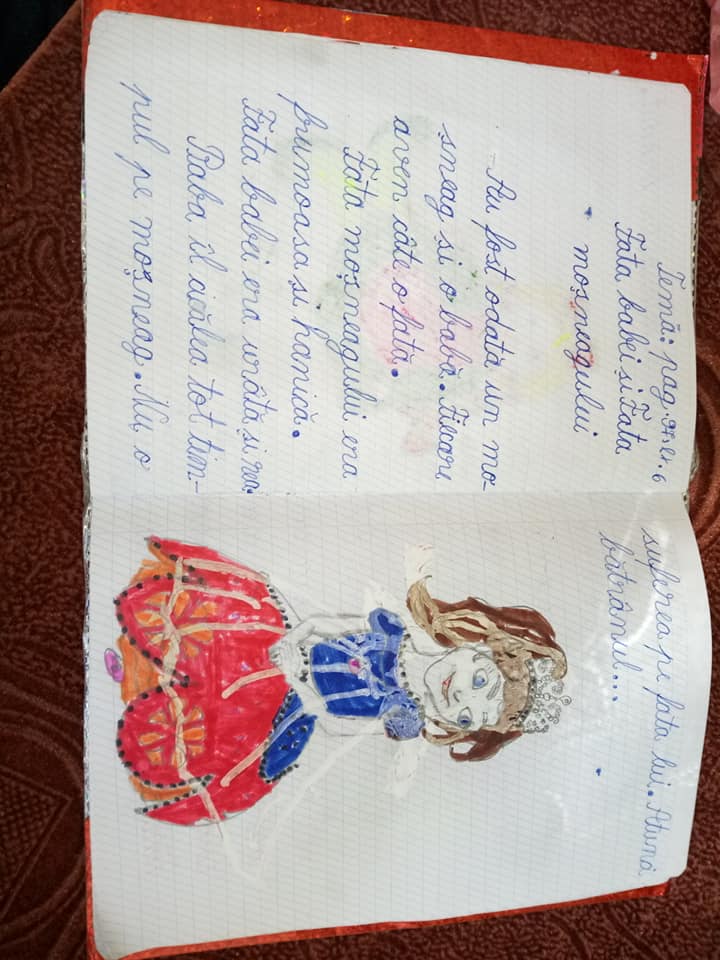 Temă: pag. 97. ex. 6
Fata babei și Fata
moșneagului
-Au fost odata un mo-
șneag și o babă. Fiecare
aven câte o fată.
Fata moșneagului era
frumoasa si harnică.
Fata babei era urâta și rea.
Baba îl cicălea tot tim-
pul pe moșneag. Nu o
suferea pe fata lui. Atunci
bătrânul...